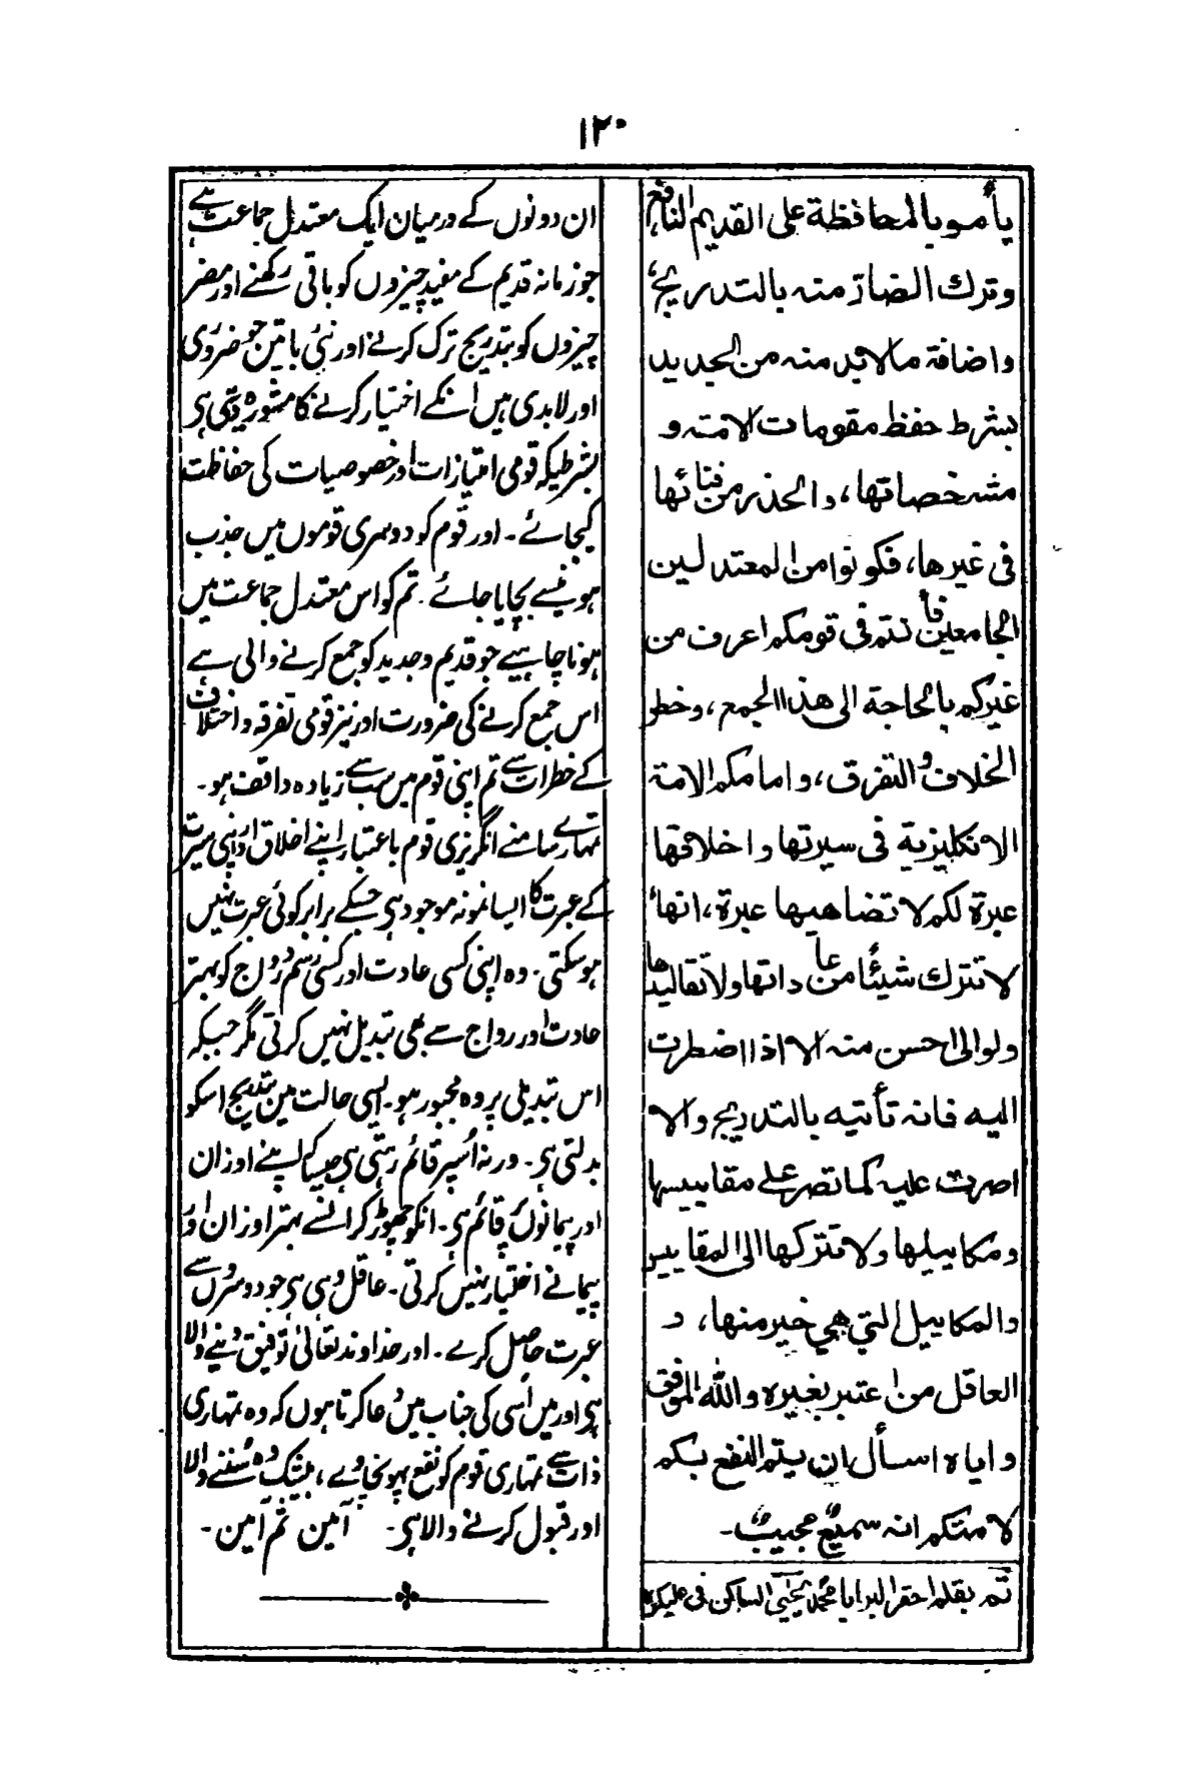 ۱۲۰
يأمر بالمحافظة على القديم النافع،
وترك الضار منه بالتدريج،
واضافة ما لا بد منه من الجديد
بشرط حفظ مقومات الامة و
مشخصاتها، والحذر من فنائها
فى غيرها، فكونوا من المعتدلين
الجامعين فأنتم فى قومكم اعرف من
غيركم بالحاجة الى هذا الجمع، وخطر
الخلاف والتفرق، وامامكم الامة
الانكليزية فى سيرتها واخلاقها
عبرة لكم لا تضاهيها عبرة، انها
لا تترك شيئًا من عاداتها ولا تقاليدها
ولو الى احسن منه الا اذا اضطرت
اليه فانه تأتيه بالتدريج والا
اصرت عليه كما تصر على مقاييسها
ومكاييلها ولا تتركها الى المقاييس
والمكاييل التي هي خير منها، و
العاقل من اعتبر بغيره والله الموفق
واياه اسأل ان يتم النفع بكم
لامتكم انه سميع مجيب۔
تم بقلم احقر البرايا محمد يحيى الساكن فى عليكره
ان دونوں کے درمیان ایک معتدل جماعت ہے
جو زمانہ قدیم کے مفید چیزوں کو باقی رکھنے اور مضر
چیزوں کو بتدریج ترک کرنے اور نئی باتیں جو ضروری
اور لابدی ہیں انکے اختیار کرنے کا مشورہ دیتی ہی
بشرطیکہ قومی امتیازات اور خصوصیات کی حفاظت
کیجائے۔ اور قوم کو دوسری قوموں میں جذب
ہونیسے بچایا جائے۔ تم کو اس معتدل جماعت میں
ہونا چاہیے جو قدیم و جدید کو جمع کرنے والی ہے
اس جمع کرنے کی ضرورت اور نیز قومی تفرقہ و اختلاف
کے خطرات سے تم اپنی قوم میں سب سے زیادہ واقف ہو۔
تمہارے سامنے انگریزی قوم باعتبار اپنے اخلاق اور اپنی سیرت
کے عبرت کا ایسا نمونہ موجود ہی جسکے برابر کوئی عبرت نہیں
ہوسکتی۔ وہ اپنی کسی عادت اور کسی رسم و رواج کو بہتر
عادت اور رواج سے بھی تبدیل نہیں کرتی مگر جبکہ
اس تبدیلی پر وہ مجبور ہو۔ ایسی حالت میں بتدریج اسکو
بدلتی ہی۔ ورنہ اُسپر قائم رہتی ہی جیسا کہ اپنے اوزان
اور پیمانوں پر قائم ہی۔ انکو چھوڑ کر انسے بہتر اوزان اور
پیمانے اختیار نہیں کرتی۔ عاقل وہی ہی جو دوسروں سے
عبرت حاصل کرے۔ اور خداوند تعالیٰ توفیق دینے والا
ہی اور میں اُسی کی جناب میں دعا کرتا ہوں کہ وہ تمہاری
ذات سے تمہاری قوم کو نفع پہونچاوے، بیشک وہ سُننے والا
اور قبول کرنے والا ہی۔ آمین ثم آمین۔